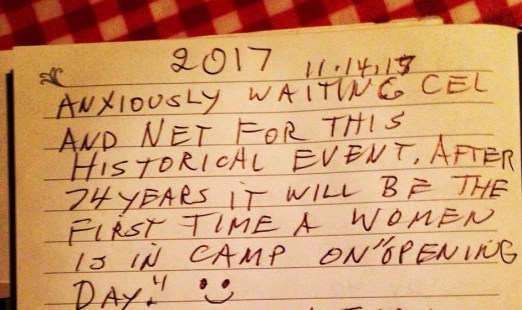 2017 11.14.15
ANXIOUSLY WAITING CEL
AND NET FOR THIS
HISTORICAL EVENT. AFTER
74 YEARS IT WILL BE THE
FIRST TIME A WOMEN
IS IN CAMP ON "OPENING
DAY."